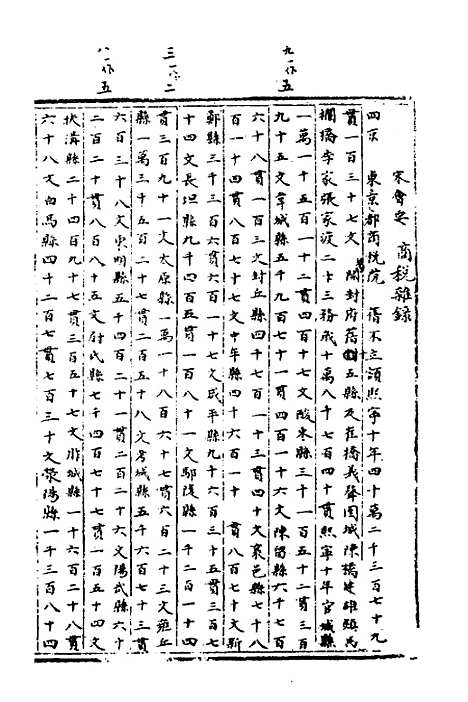 九一作五
三一作二
八一作五
宋會要 商稅雜錄
四京 東京都商稅院 舊不立額熙寧十年四十萬二千三百七十九
貫一百三十七文 開封府舊 五縣及崔橋義聲圉城陳橋建雄馬
欄橋李家張家渡二十三務歲十萬八千七百四十貫熙寧十年宮城縣
一萬一千五百一十貫四百十七文酸棗縣三千一百五十二貫三百
九十五文韋城縣五千九百七十一貫四百一十六文陳留縣六千七百
六十八貫一百三文封丘縣四千七百一十三貫四十文襄邑縣七十八
百一十四貫八百七十七文中牟縣四十六百一十 貫八百七十文新
鄭縣三千三百六貫六百一十七文咸平縣九千六百三十五貫三百七
十四文長垣縣九千四百五貫一百八十一文鄢陵縣一千二百一十四
貫三百九十一文太康縣一萬一十八百六十七貫六百二十三文雍丘
縣一萬三千五百二十七貫二百五十八文考城縣五千六百七十三貫
六百三十八文東明縣五千四百二十一貫二百二十六文陽武縣六十
二百二十貫八百八十五文尉氏縣七千四百七十七貫一百五十四文
扶溝縣二十四百九十七貫三百五十七文胙城縣一十六百二十八貫
六十八文白馬縣四十二百七貫七百三十文滎陽縣一千三百八十四